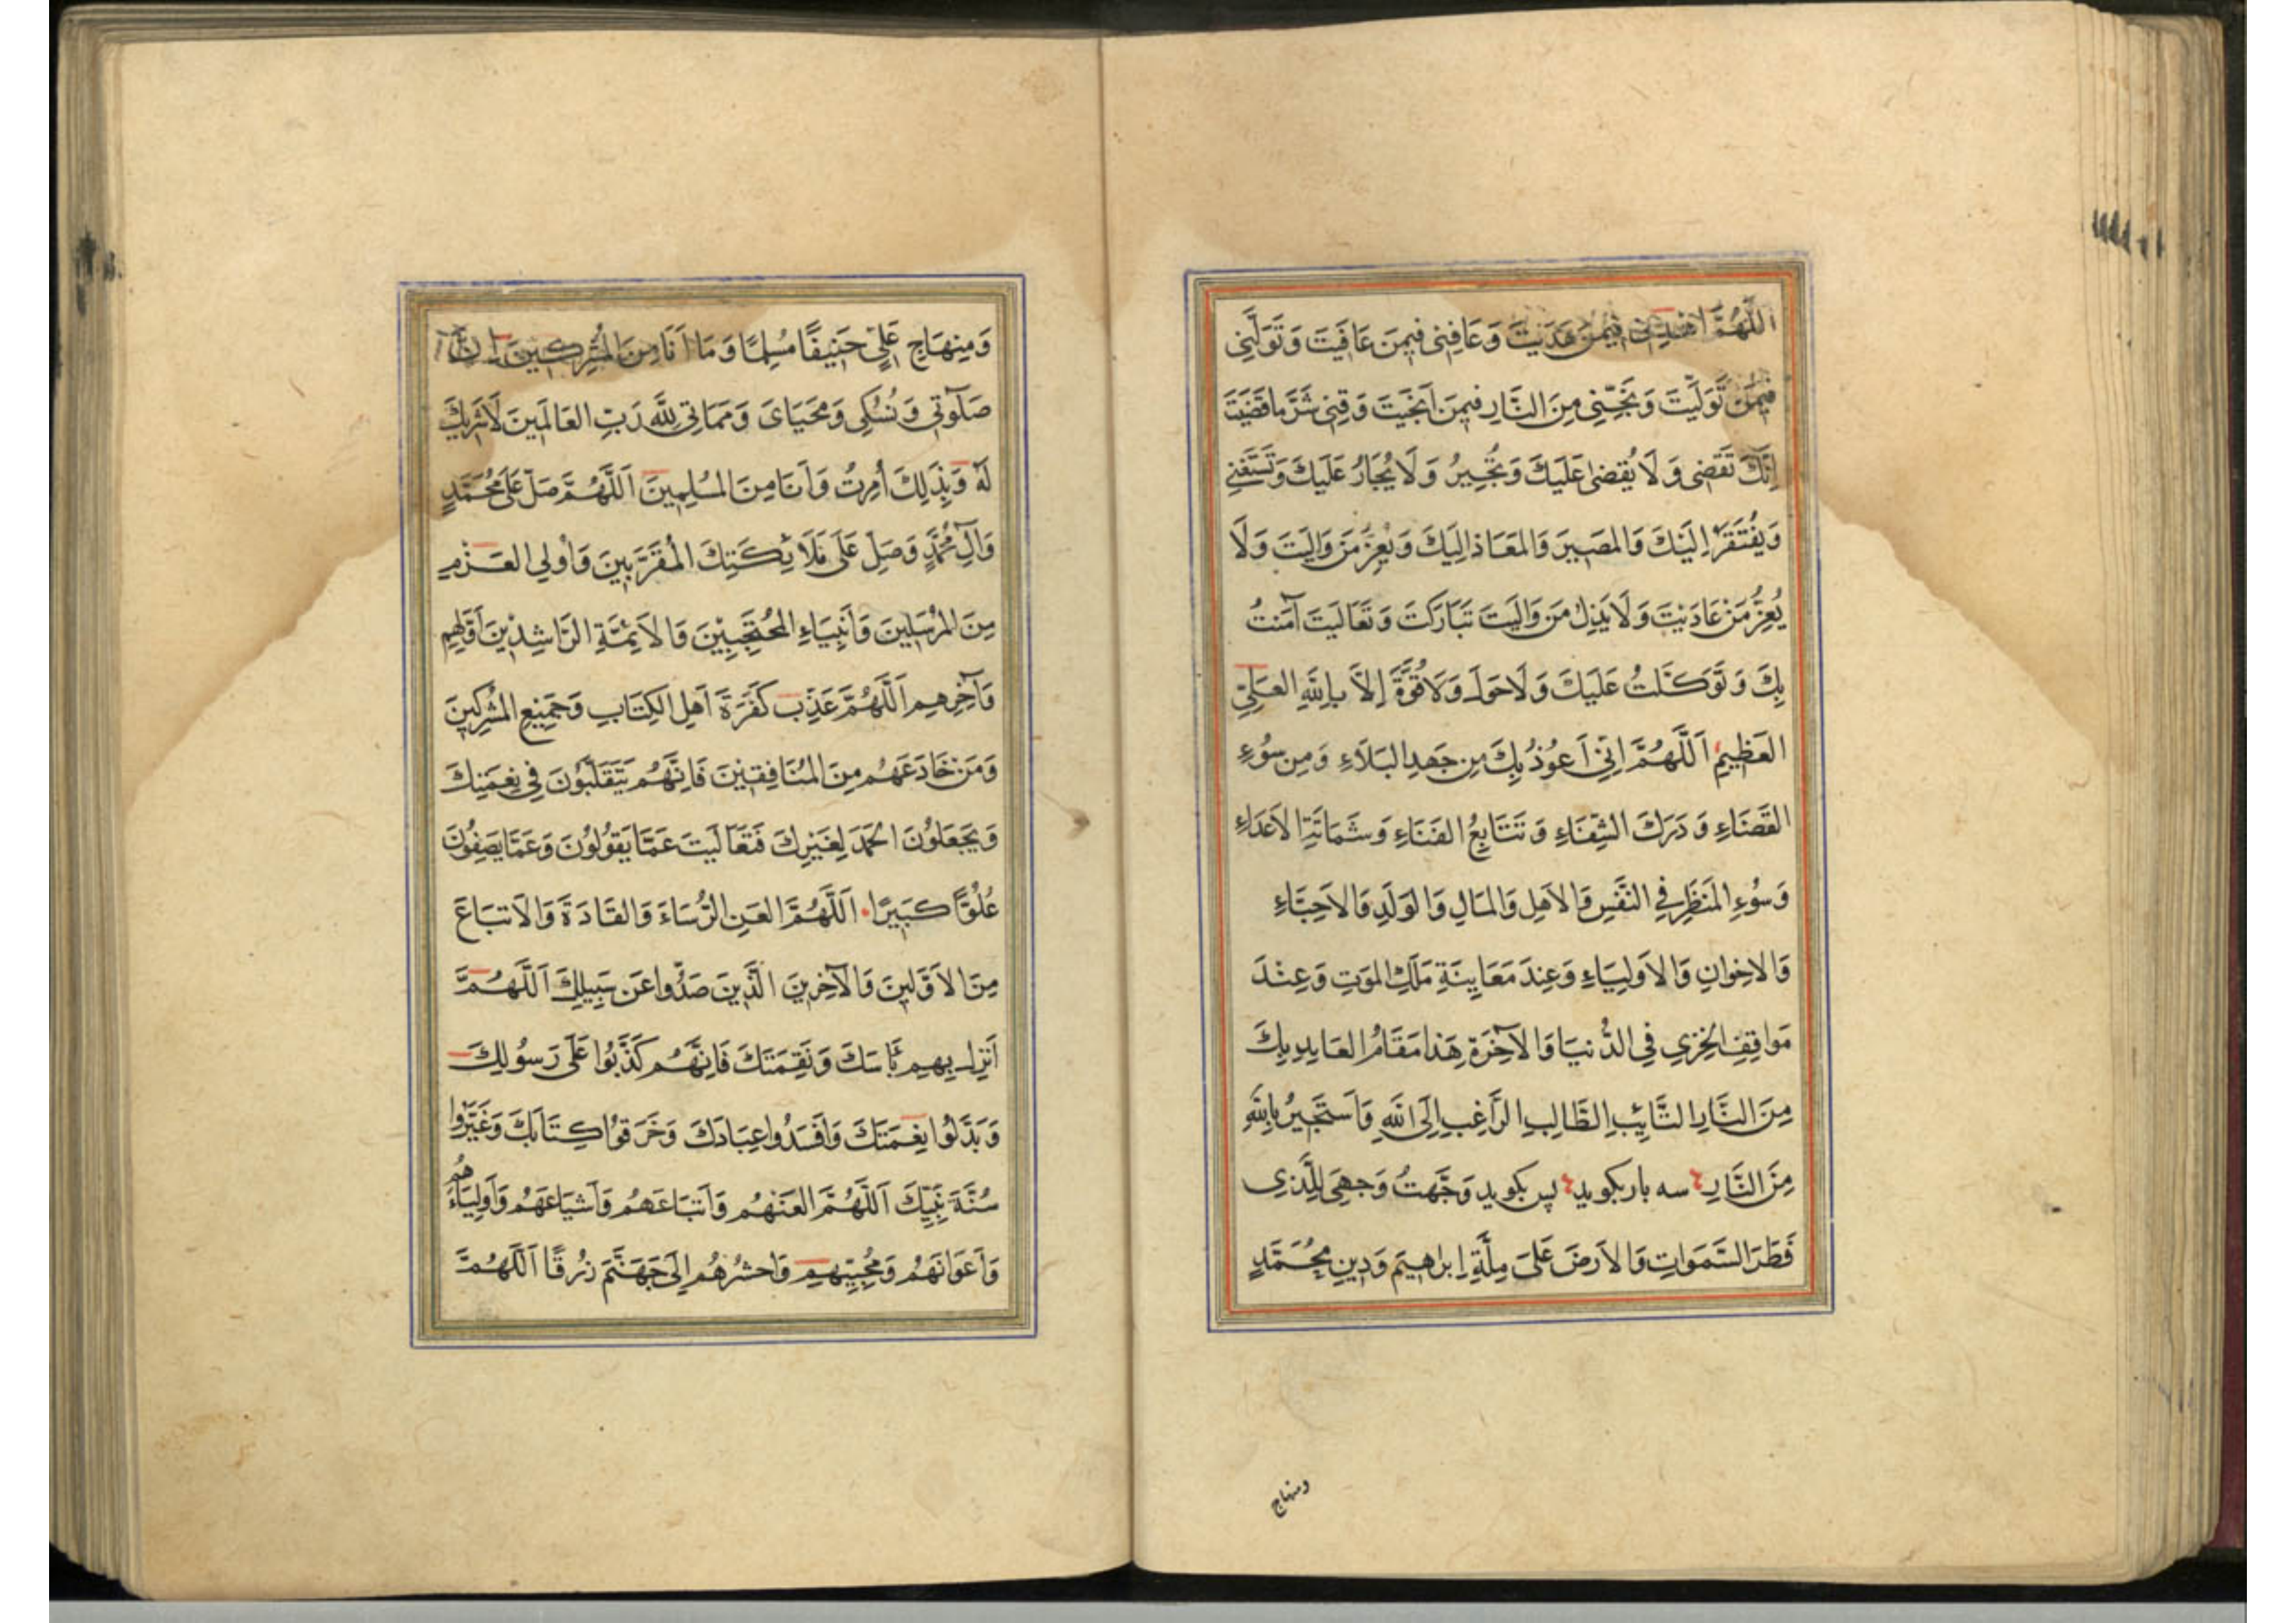 اللَّهُمَّ اهْدِنِى فِيمَنْ هَدَيْتَ وَعَافِنِى فِيمَنْ عَافَيْتَ وَتَوَلَّنِى
فِيمَنْ تَوَلَّيْتَ وَنَجِّنِى مِنَ النَّارِ فِيمَنْ اَنْجَيْتَ وَقِنِى شَرَّ مَا قَضَيْتَ
اِنَّكَ تَقْضِى وَلَا يُقْضىٰ عَلَيْكَ وَتُجِيرُ وَلَا يُجَارُ عَلَيْكَ وَتَسْتَغْنِى
وَيُفْتَقَرُ اِلَيْكَ وَالمَصِيرَ وَالمَعَاذ اِلَيْكَ وَيَعِزُّ مَنْ وَالَيْتَ وَلَا
يُعِزُّ مَنْ عَادَيْتَ وَلَا يَذِلُّ مَنْ وَالَيْتَ تَبَارَكْتَ وَتَعَالَيْتَ آمَنْتُ
بِكَ وَتَوَكَّلْتُ عَلَيْكَ وَلَا حَولَ وَلَا قُوَّةَ اِلَّا بِاللَّهِ العَلِيِّ
العَظِيمِ اَللَّهُمَّ اِنِّى اَعُوذُ بِكَ مِن جَهدِ البَلَاءِ وَمِن سُوءِ
القَضَاءِ وَدَرَكَ الشِّقَاءِ وَتَتَابِعُ الفَنَاءِ وَشَمَاتَةِ الاَعدَاءِ
وَسُوءِ المَنظَرِ فِي النَّفْسِ وَالاَهلِ وَالمَالِ وَالوَلَدِ وَالاَحِبَّاءِ
وَالاِخوَانِ وَالاَولِيَاءِ وَعِندَ مَعَايِنَةِ مَلَكِ المَوتِ وَعِنْدَ
مَوَاقِفِ الخِزيِ فِي الدُّنيَا وَالآخِرَةِ هَذَا مَقَامُ العَايِدِ بِكَ
مِنَ النَّارِ التَّائِبِ الطَّالِبِ الرَّاغِبِ اِلَى اللَّهِ وَاَستَجِيرُ بِاللَّهِ
مِنَ النَّارِ سه بار بکوید پس بکوید وَجَّهتُ وَجهِىَ لِلَّذِى
فَطَرَ السَّمَوَاتِ وَالاَرضَ عَلىَ مِلَّةِ اِبرَاهِيمَ وَدِينِ مُحَمَّدٍ
ومنهاج
وَمِنهَاجِ عَلِيٍّ حَنِيفًا مُسلِمًا وَمَا اَنَا مِنَ المُشرِكِينَ اِنَّ
صَلَوٰتِي وَنُسُكِي وَمَحيَاىَ وَمَمَاتِي لِلَّهِ رَبِّ العَالَمِينَ لَا شَرِيكَ
لَهُ وَبِذَلِكَ اُمِرتُ وَاَنَا مِنَ المُسلِمِينَ اَللَّهُمَّ صَلِّ عَلَى مُحَمَّدٍ
وَآلِ مُحَمَّدٍ وَصَلِّ عَلَى مَلَائِكَتِكَ المُقَرَّبِينَ وَاُولِي العَزْمِ
مِنَ المُرسَلِينَ وَاَنبِيَاءِ المُنتَجَبِينَ وَالاَئِمَّةِ الرَّاشِدِينَ اَوَّلِهِم
وَآخِرِهِم اَللَّهُمَّ عَذِّب كَفَرَةَ اَهلِ الكِتَابِ وَجَمِيعِ المُشرِكِينَ
وَمَن خَادَعَهُم مِنَ المُنَافِقِينَ فَاِنَّهُم يَتَقَلَّبُونَ فِي نِعمَتِكَ
وَيَجعَلُونَ الحَمدَ لِغَيرِكَ فَتَعَالَيتَ عَمَّا يَقُولُونَ وَعَمَّا يَصِفُونَ
عُلُوًّا كَبِيرًا اَللَّهُمَّ العَنِ الرُّسَاءَ وَالقَادَةَ وَالاَتبَاعَ
مِنَ الاَوَّلِينَ وَالآخِرِينَ الَّذِينَ صَدُّوا عَن سَبِيلِكَ اَللَّهُمَّ
اَنزِل بِهِم بَاسَكَ وَنَقِمَتَكَ فَاِنَّهُم كَذَّبُوا عَلَى رَسُولِكَ
وَبَدَّلُوا نِعمَتَكَ وَاَفسَدُوا عِبَادَكَ وَخَرَّقُوا كِتَابَكَ وَغَيَّرُوا
سُنَّةَ نَبِيِّكَ اَللَّهُمَّ العَنهُم وَاَتبَاعَهُم وَاَشيَاعَهُم وَاَولِيَاءَهُم
وَاَعوَانَهُم وَمُحِبِّيهِم وَاحشُرهُم اِلَى جَهَنَّمَ زُرقًا اَللَّهُمَّ